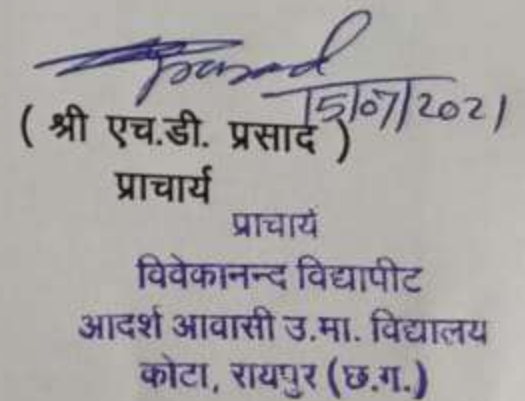 Prasad
15/07/2021
( श्री एच.डी. प्रसाद )
प्राचार्य
प्राचार्य
विवेकानन्द विद्यापीट
आदर्श आवासी उ.मा. विद्यालय
कोटा, रायपुर (छ.ग.)